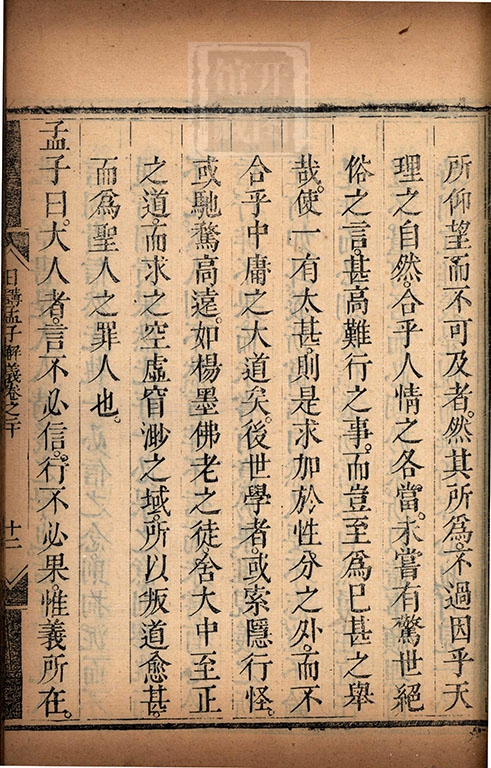 所仰望而不可及者。然其所爲。不過因乎天
理之自然。合乎人情之各當。未嘗有驚世絕
俗之言。甚高難行之事。而豈至爲已甚之舉
哉。使一有太甚。則是求加於性分之外。而不
合乎中庸之大道矣。後世學者。或索隱行怪。
或馳騖高遠。如楊墨佛老之徒。舍大中至正
之道。而求之空虛窅渺之域。所以叛道愈甚。
而爲聖人之罪人也。
孟子曰。大人者。言不必信。行不必果。惟義所在。
日講孟子解義卷之二十 十二